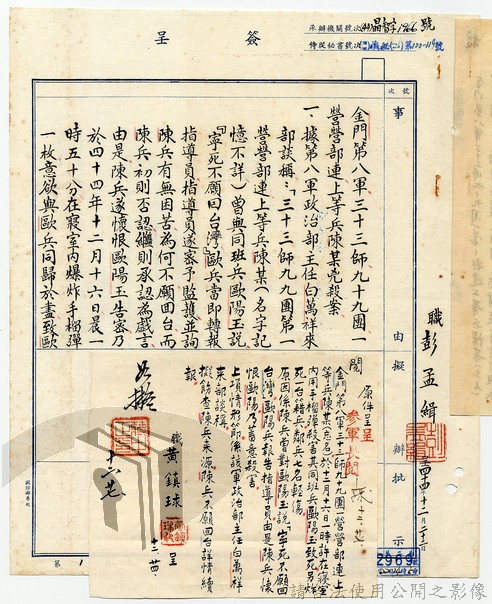 簽呈
承辦機關號次
號
侍從秘書號次
號
號次
事由擬辦批示
金門第八軍三十三師九十九團一
營營部連上等兵陳某兇殺案
一、據第八軍政治部主任白萬祥來
部談稱:「三十三師九九團第一
營營部連上等兵陳某(名字記
憶不詳)曾與同班兵歐陽玉說
『寧死不願回台灣』歐兵當即轉報
指導員指導員遂密予監護並詢
陳兵有無困苦為何不願回台而
陳兵初則否認繼則承認為戲言
由是陳兵遂懷恨歐陽玉告密乃
於四十四年十二月十六日晨一
時五十分在寢室內爆炸手榴彈
一枚意欲與歐兵同歸於盡致歐
職彭孟緝
原件呈呈
參軍長閱
閱
金門第八軍三十三師九十九團一營營部連上
等兵陳某(忘名)於十二月十六日一時許在寢室
內用手榴彈殺害其同班兵歐陽玉致死另炸
死一台籍兵鄰兵七名輕傷
原因係陳兵曾對歐陽玉說「寧死不願回
台灣」歐陽兵報告指導員由是陳兵懷
恨歐陽乃蓄意殺害
上項情形節係該軍政治部主任白萬祥
來部談稱
擬飭查陳兵來源陳兵不願回台詳情續
報
職黃鎮球呈
十二、廿四、
2969
第1
請
法使用公開之影像